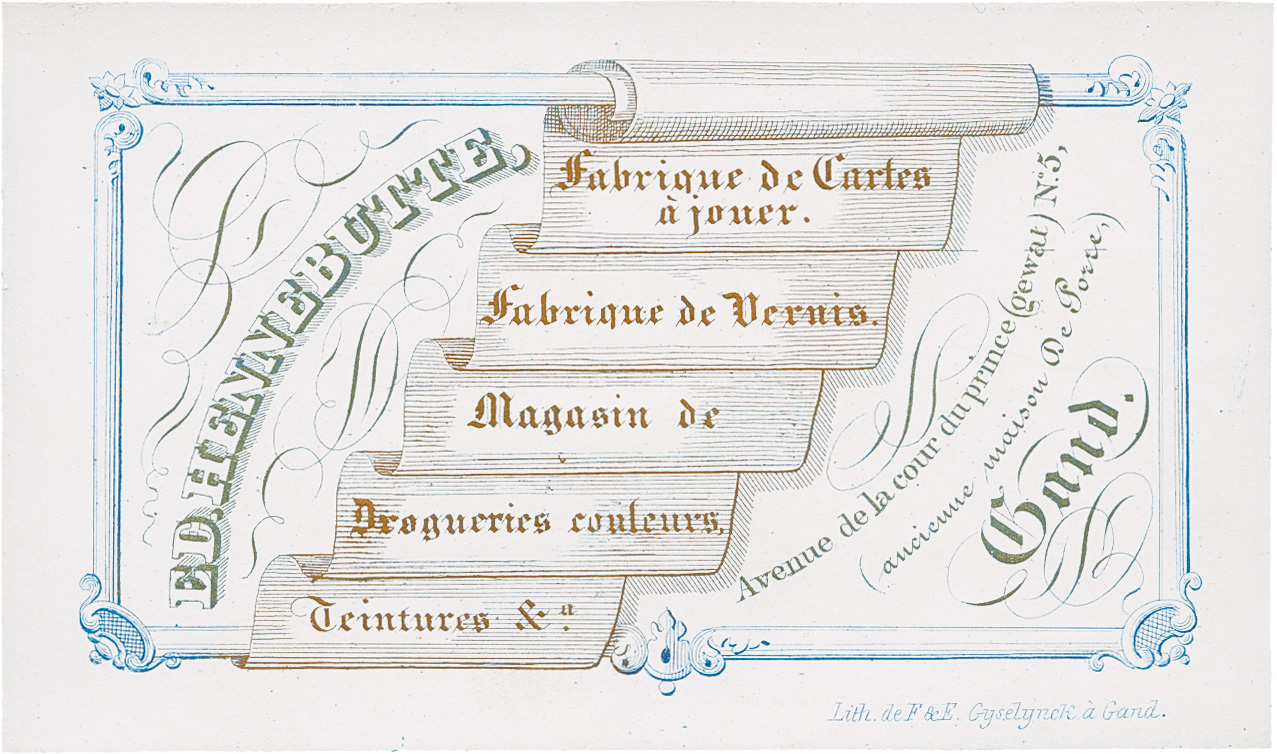 ED. HENNEBUTTE,
Fabrique de Cartes
à jouer.
Fabrique de Vernis.
Magasin de
Drogueries couleurs,
Teintures & a.
Avenue de la cour du prince (gewat) N° 5,
(ancienne maison De Porre,)
Gand.
Lith. de F & E. Gyselynck à Gand.